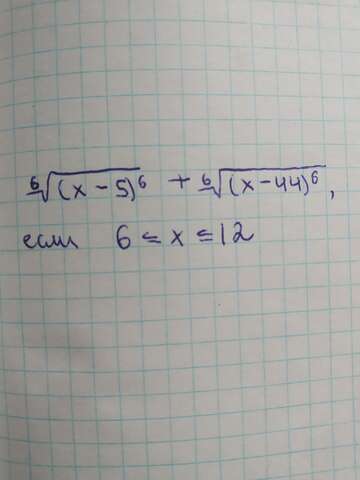 ⁶√(x-5)⁶ + ⁶√(x-44)⁶,
если 6 ≤ x ≤ 12